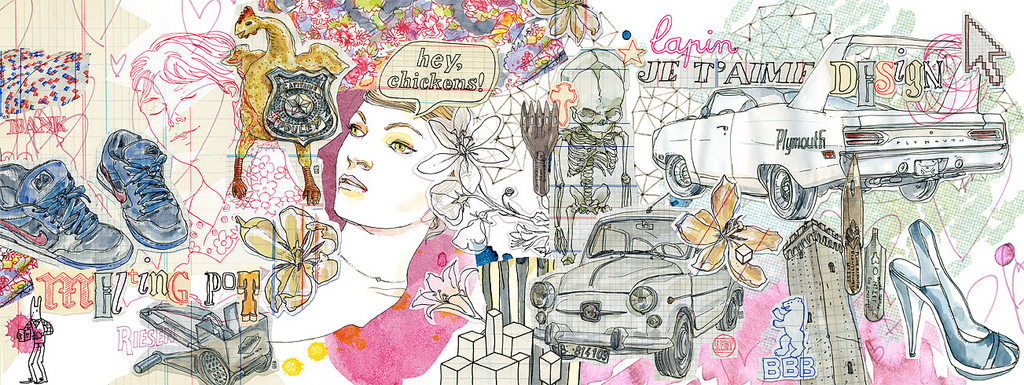 hey,
chickens!
lapin
JE T'AIME DESIGN
BANK
Plymouth
PLYMOUTH
MELTING POT
RIESEN
BBB